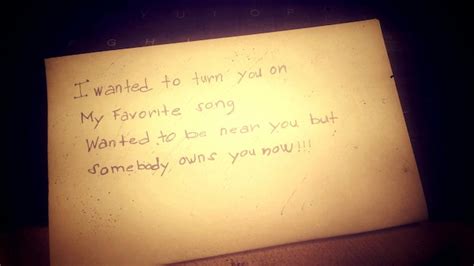 I wanted to turn you on
My Favorite song
Wanted to be near you but
somebody owns you now!!!